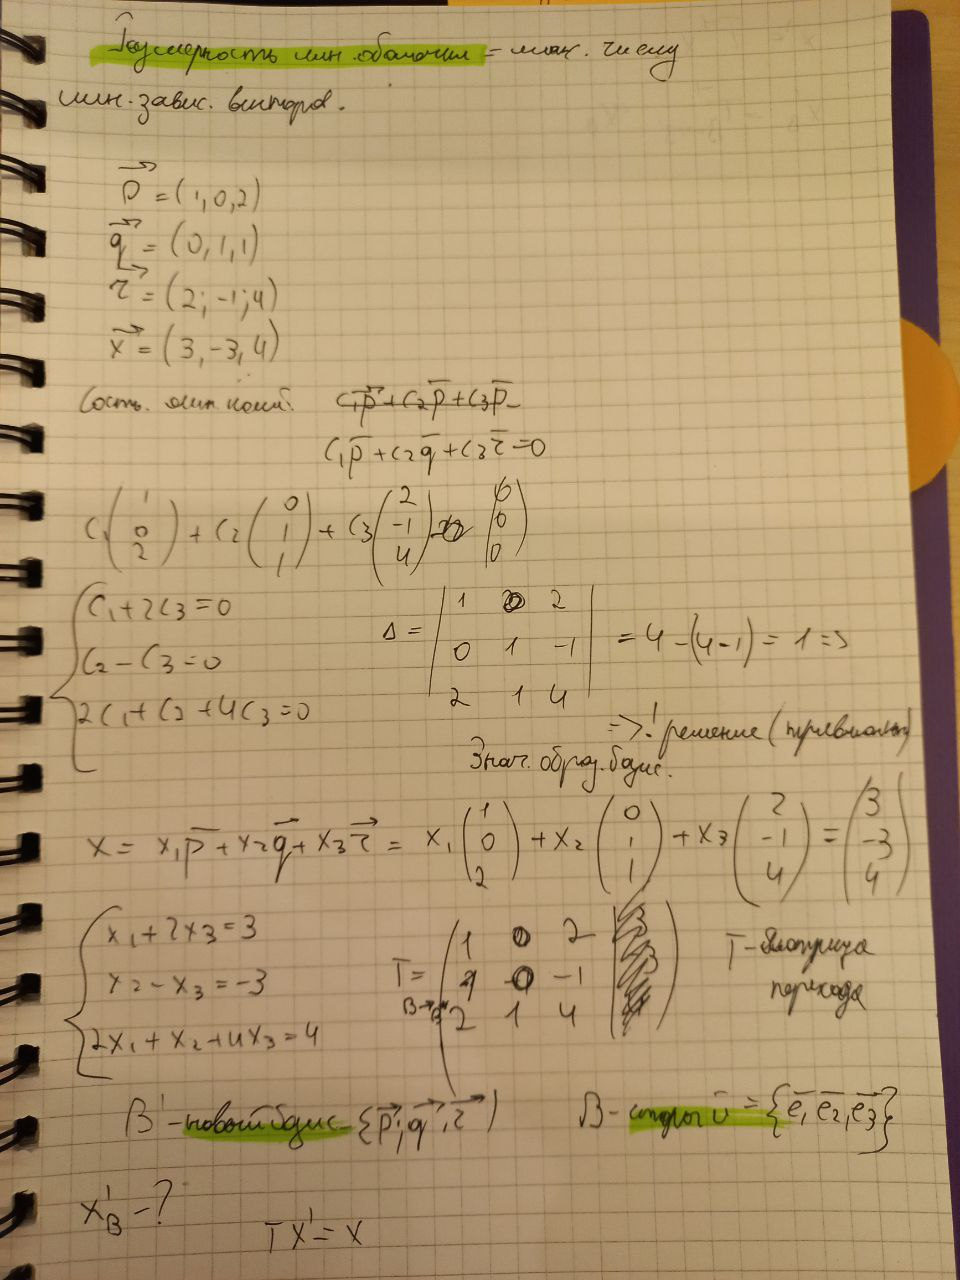 Размерность лин. оболочки = мак. числу
лин. завис. векторов.
p⃗ = (1, 0, 2)
q⃗ = (0, 1, 1)
r⃗ = (2; -1; 4)
x⃗ = (3, -3, 4)
Сост. лин. комб. C₁p⃗ + C₂p̄ + C₃p̄
C₁p̄ + C₂q̄ + C₃r̄ = 0
C₁(1 0 2) + C₂(0 1 1) + C₃(2 -1 4) = (0 0 0)
{ C₁ + 2C₃ = 0
C₂ - C₃ = 0
2C₁ + C₂ + 4C₃ = 0
Δ = | 1 0 2
0 1 -1
2 1 4 | = 4 - (4 - 1) = 1 =>
=> ! решение (тривиальн)
Знач. образ. базис.
x = x₁p̄ + x₂q⃗ + x₃r⃗ = x₁(1 0 2) + x₂(0 1 1) + x₃(2 -1 4) = (3 -3 4)
{ x₁ + 2x₃ = 3
x₂ - x₃ = -3
2x₁ + x₂ + 4x₃ = 4
T = ( 1 0 2
-1
2 1 4 )
B→B'
T - матрица
перехода
B' - новый базис {p⃗; q⃗; r⃗}
B - старый = {e₁, e₂, e₃}
x'B - ?
T x' = x